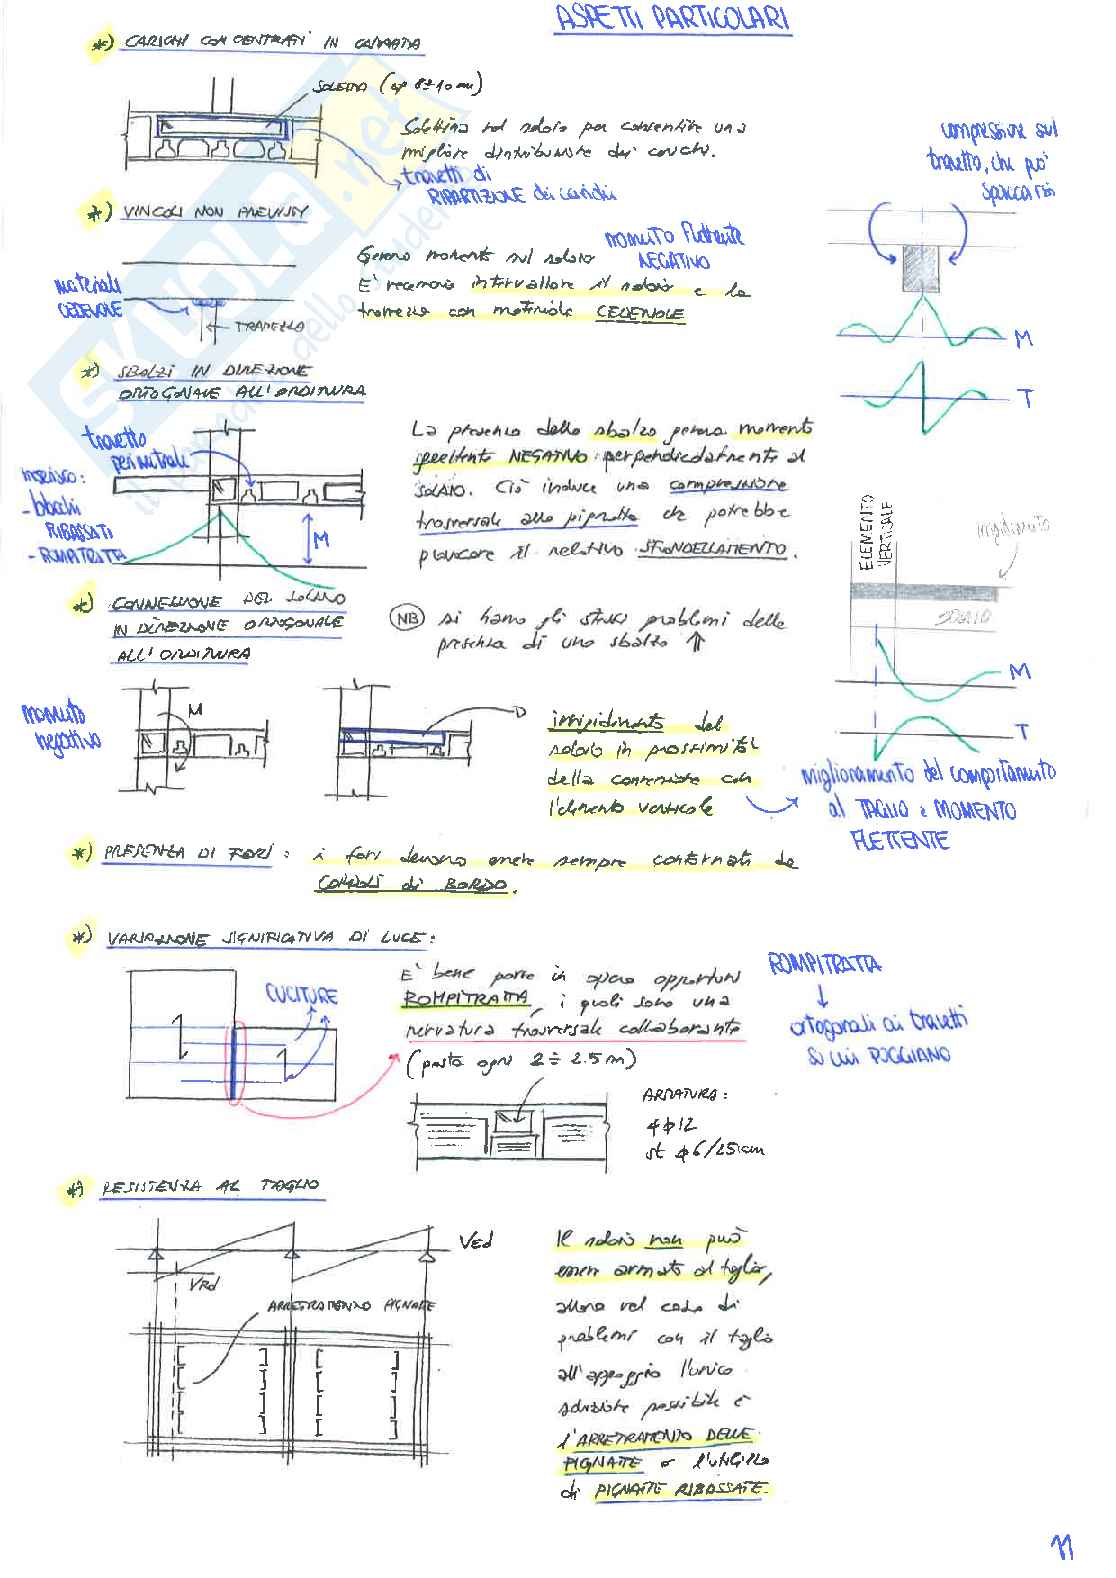 ASPETTI PARTICOLARI
*) CARICHI CONCENTRATI IN CAMPATA
SOLETTA (sp 8÷10 cm)
Solettina nel solaio per consentire una
migliore distribuzione dei carichi.
travetti di
RIPARTIZIONE dei carichi
compressione sul
travetto, che può
spaccarsi
*) VINCOLI NON PREVISTI
Genera momento sul solaio
momento flettente
NEGATIVO
E' necessario intervallare il solaio e la
traversa con materiale CEDEVOLE
materiale
CEDEVOLE
TRAMEZZO
M
T
*) SBALZI IN DIREZIONE
ORTOGONALE ALL'ORDITURA
travetto
perimetrale
inserisco:
- blocchi
RIBASSATI
- ROMPITRATTA
M
La presenza dello sbalzo genera momento
flettente NEGATIVO perpendicolarmente al
SOLAIO. Ciò induce una compressione
trasversale alle pignatte che potrebbe
provocare il relativo SFONDELLAMENTO.
ELEMENTO
VERTICALE
irrigidimento
SOLAIO
M
T
*) CONNESSIONE DEL SOLAIO
IN DIREZIONE ORTOGONALE
ALL'ORDITURA
NB si hanno gli stessi problemi della
presenza di uno sbalzo ↑
momento
negativo
M
irrigidimento del
solaio in prossimità
della connessione con
l'elemento verticale
miglioramento del comportamento
al TAGLIO e MOMENTO
FLETTENTE
*) PRESENZA DI FORI: i fori devono essere sempre contornati da
CORDOLI di BORDO.
*) VARIAZIONE SIGNIFICATIVA DI LUCE:
CUCITURE
E' bene porre in opera opportuni
ROMPITRATTA, i quali sono una
nervatura trasversale collaborante
(posta ogni 2 ÷ 2.5 m)
ROMPITRATTA
↓
ortogonali ai travetti
su cui POGGIANO
ARMATURA:
4 ϕ 12
st ϕ 6/25 cm
*) RESISTENZA AL TAGLIO
VEd
VRd
ARRETRAMENTO PIGNATTE
Il solaio non può
essere armato al taglio,
allora nel caso di
problemi con il taglio
all'appoggio l'unica
soluzione possibile è
l'ARRETRAMENTO DELLE
PIGNATTE o l'utilizzo
di PIGNATTE RIBASSATE.
11
SKUOLA.net